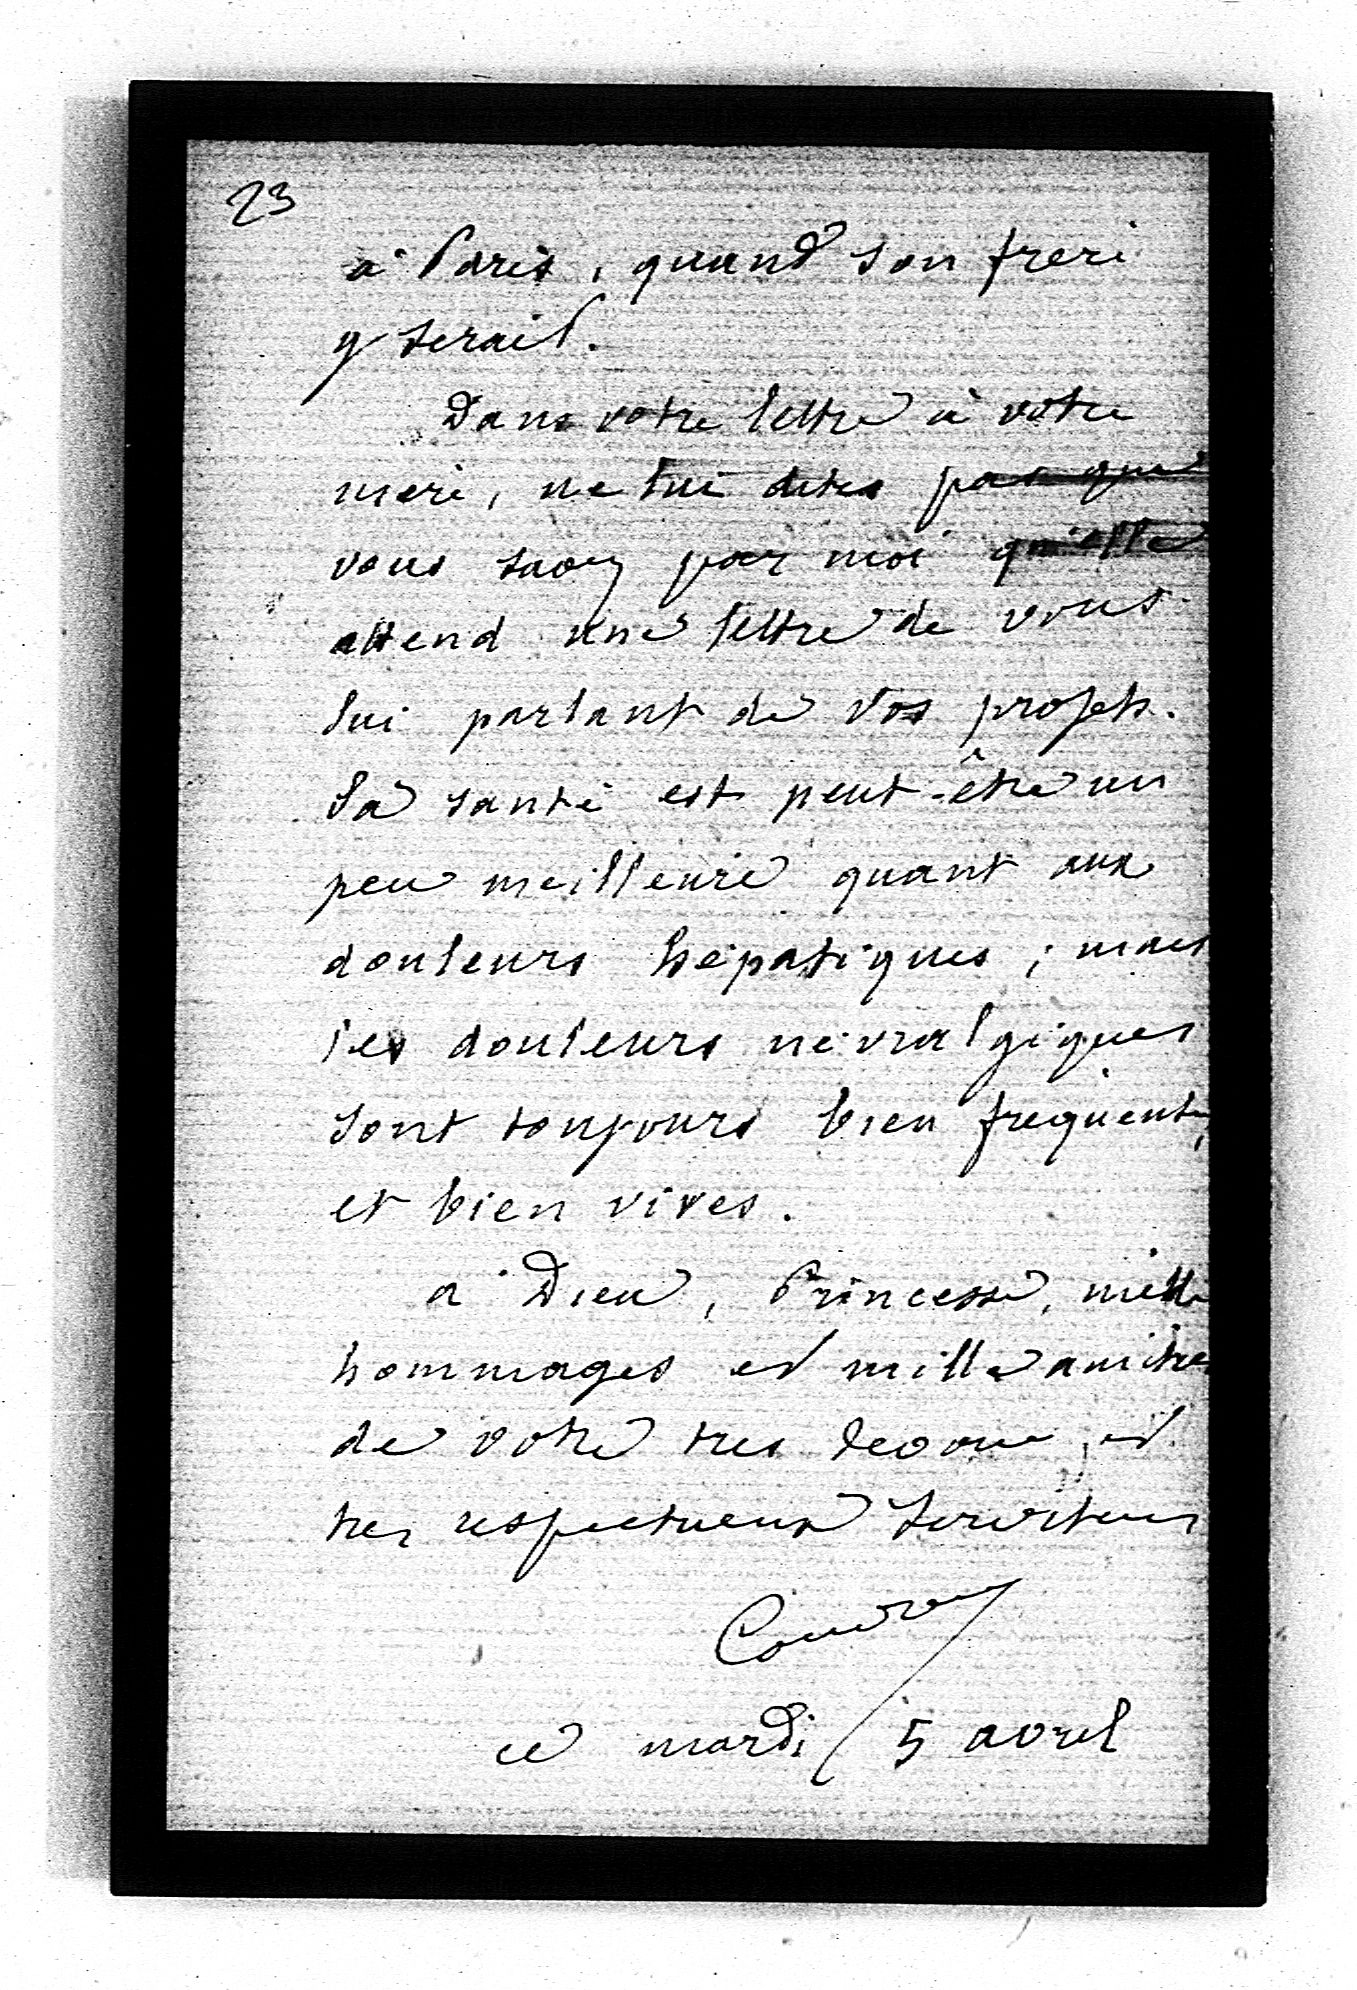 23
à Paris, quand son frere
y serait.
Dans votre lettre à votre
mere, ne lui dites pas que
vous savez par moi qu'elle
attend une lettre de vous
lui parlant de vos projets.
Sa santé est peut-être un
peu meilleure quant aux
douleurs hépatiques ; mais
les douleurs névralgiques
sont toujours bien frequentes,
et bien vives.
à Dieu, Princesse, mille
hommages et mille amities
de votre tres devoué et
tres respectueux serviteur
ce mardi 5 avril